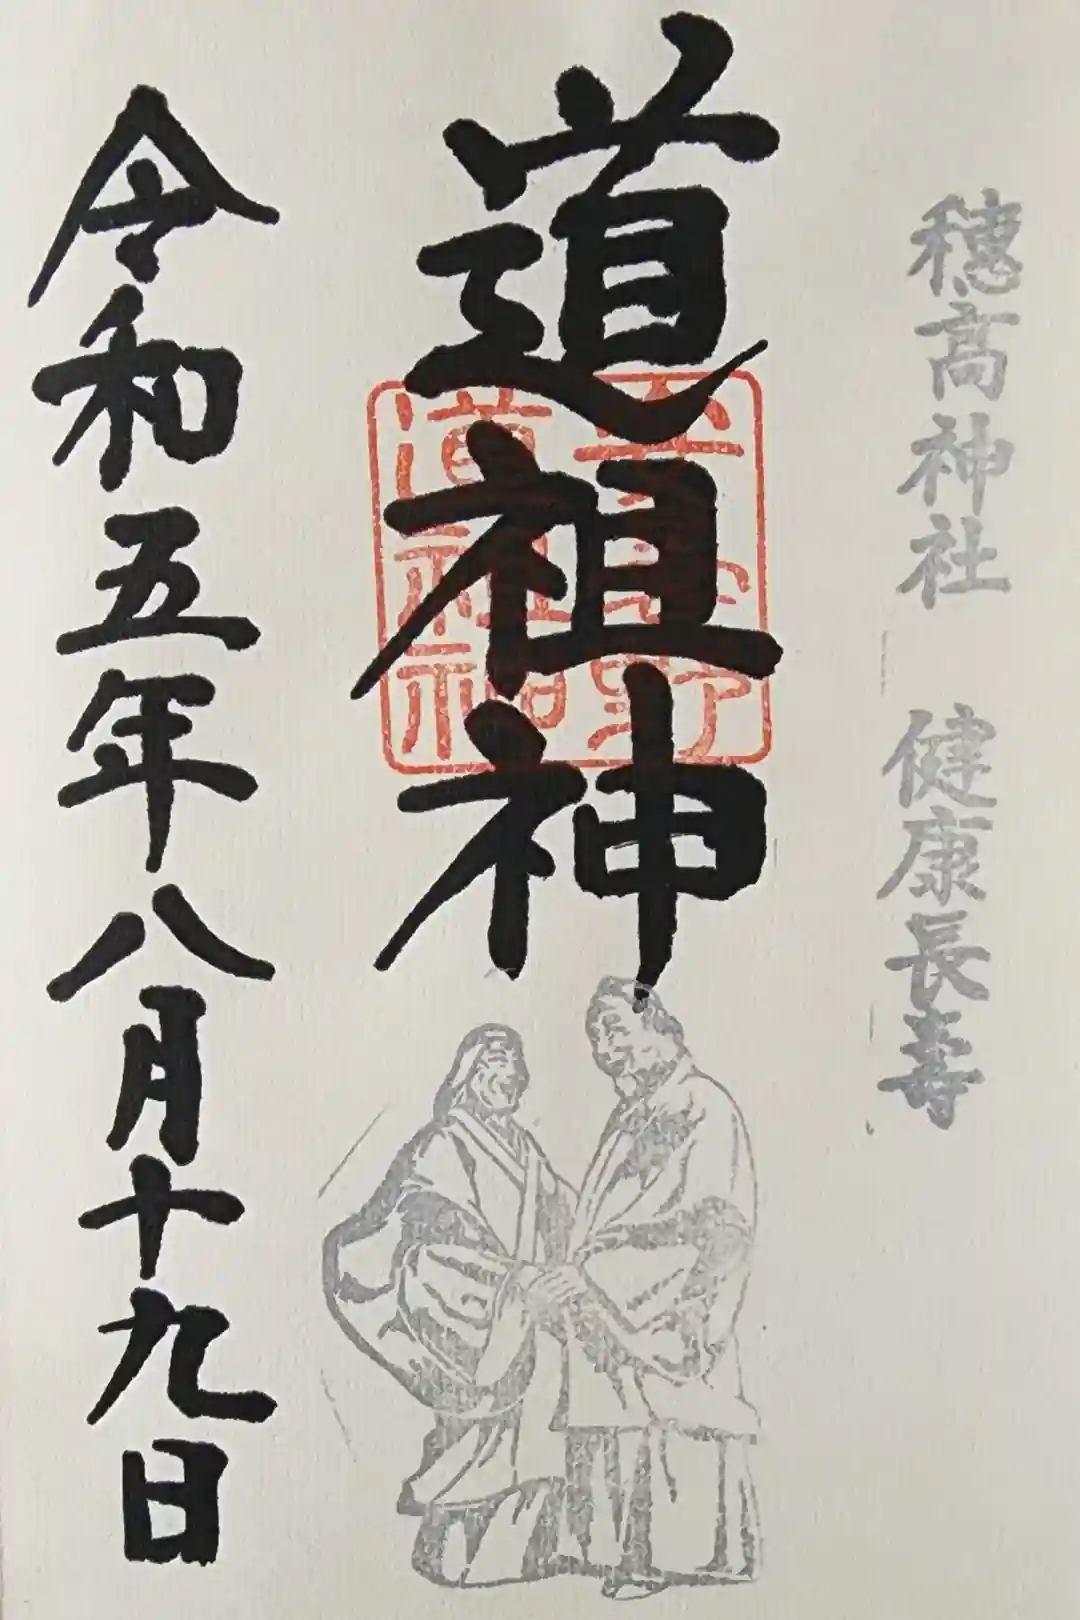 穂髙神社 健康長壽
道祖神
令和五年八月十九日